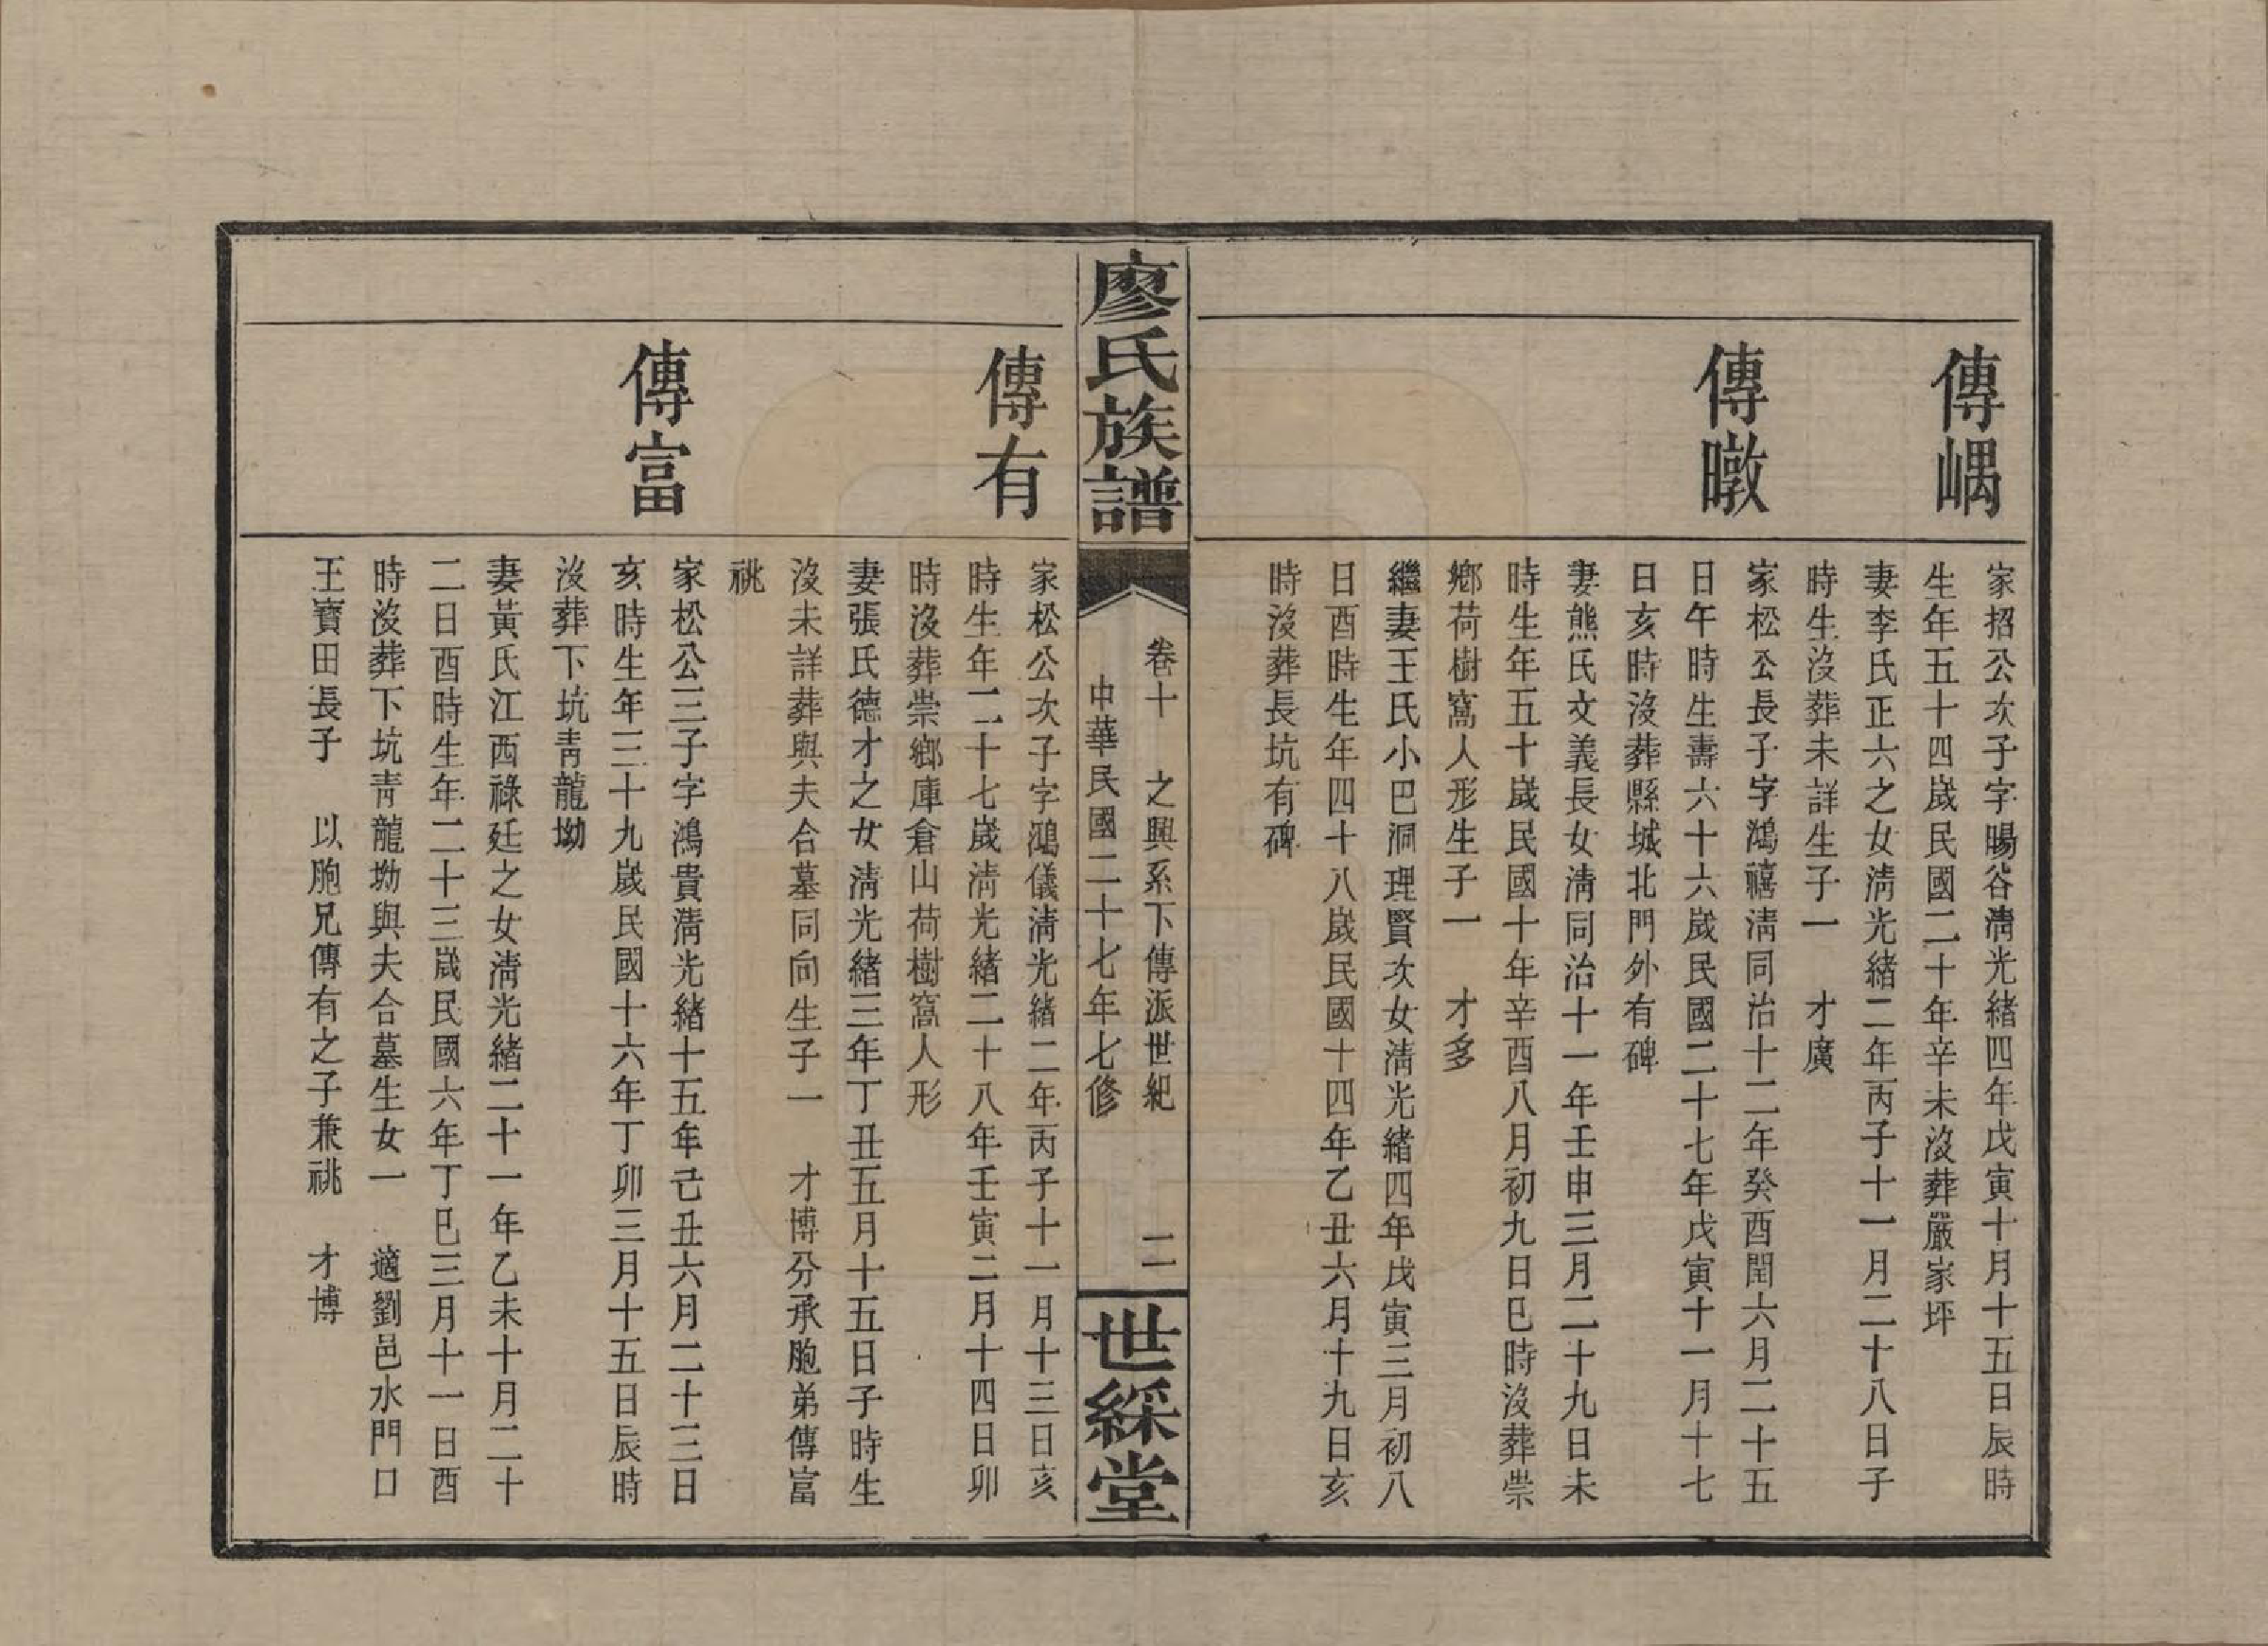 傳嵎
家招公次子字暘谷淸光緒四年戊寅十月十五日辰時
生年五十四歲民國二十年辛未沒葬嚴家坪
妻李氏正六之女淸光緒二年丙子十一月二十八日子
時生沒葬未詳生子一　才廣
傳暾
家松公長子字鴻禧淸同治十二年癸酉閏六月二十五
日午時生壽六十六歲民國二十七年戊寅十一月十七
日亥時沒葬縣城北門外有碑
妻熊氏文義長女淸同治十一年壬申三月二十九日未
時生年五十歲民國十年辛酉八月初九日巳時沒葬崇
鄉荷樹窩人形生子一　才多
繼妻王氏小巴洞理賢次女淸光緒四年戊寅三月初八
日酉時生年四十八歲民國十四年乙丑六月十九日亥
時沒葬長坑有碑
廖氏族譜
卷十　之興系下傳派世紀　二
中華民國二十七年七修
世綵堂
傳有
家松公次子字鴻儀淸光緒二年丙子十一月十三日亥
時生年二十七歲淸光緒二十八年壬寅二月十四日卯
時沒葬崇鄉庫倉山荷樹窩人形
妻張氏德才之女淸光緒三年丁丑五月十五日子時生
沒未詳葬與夫合墓同向生子一　才博分承胞弟傳富
祧
傳富
家松公三子字鴻貴淸光緒十五年己丑六月二十三日
亥時生年三十九歲民國十六年丁卯三月十五日辰時
沒葬下坑靑龍坳
妻黃氏江西祿廷之女淸光緒二十一年乙未十月二十
二日酉時生年二十三歲民國六年丁巳三月十一日酉
時沒葬下坑靑龍坳與夫合墓生女一　適劉邑水門口
王寶田長子　以胞兄傳有之子兼祧　才博